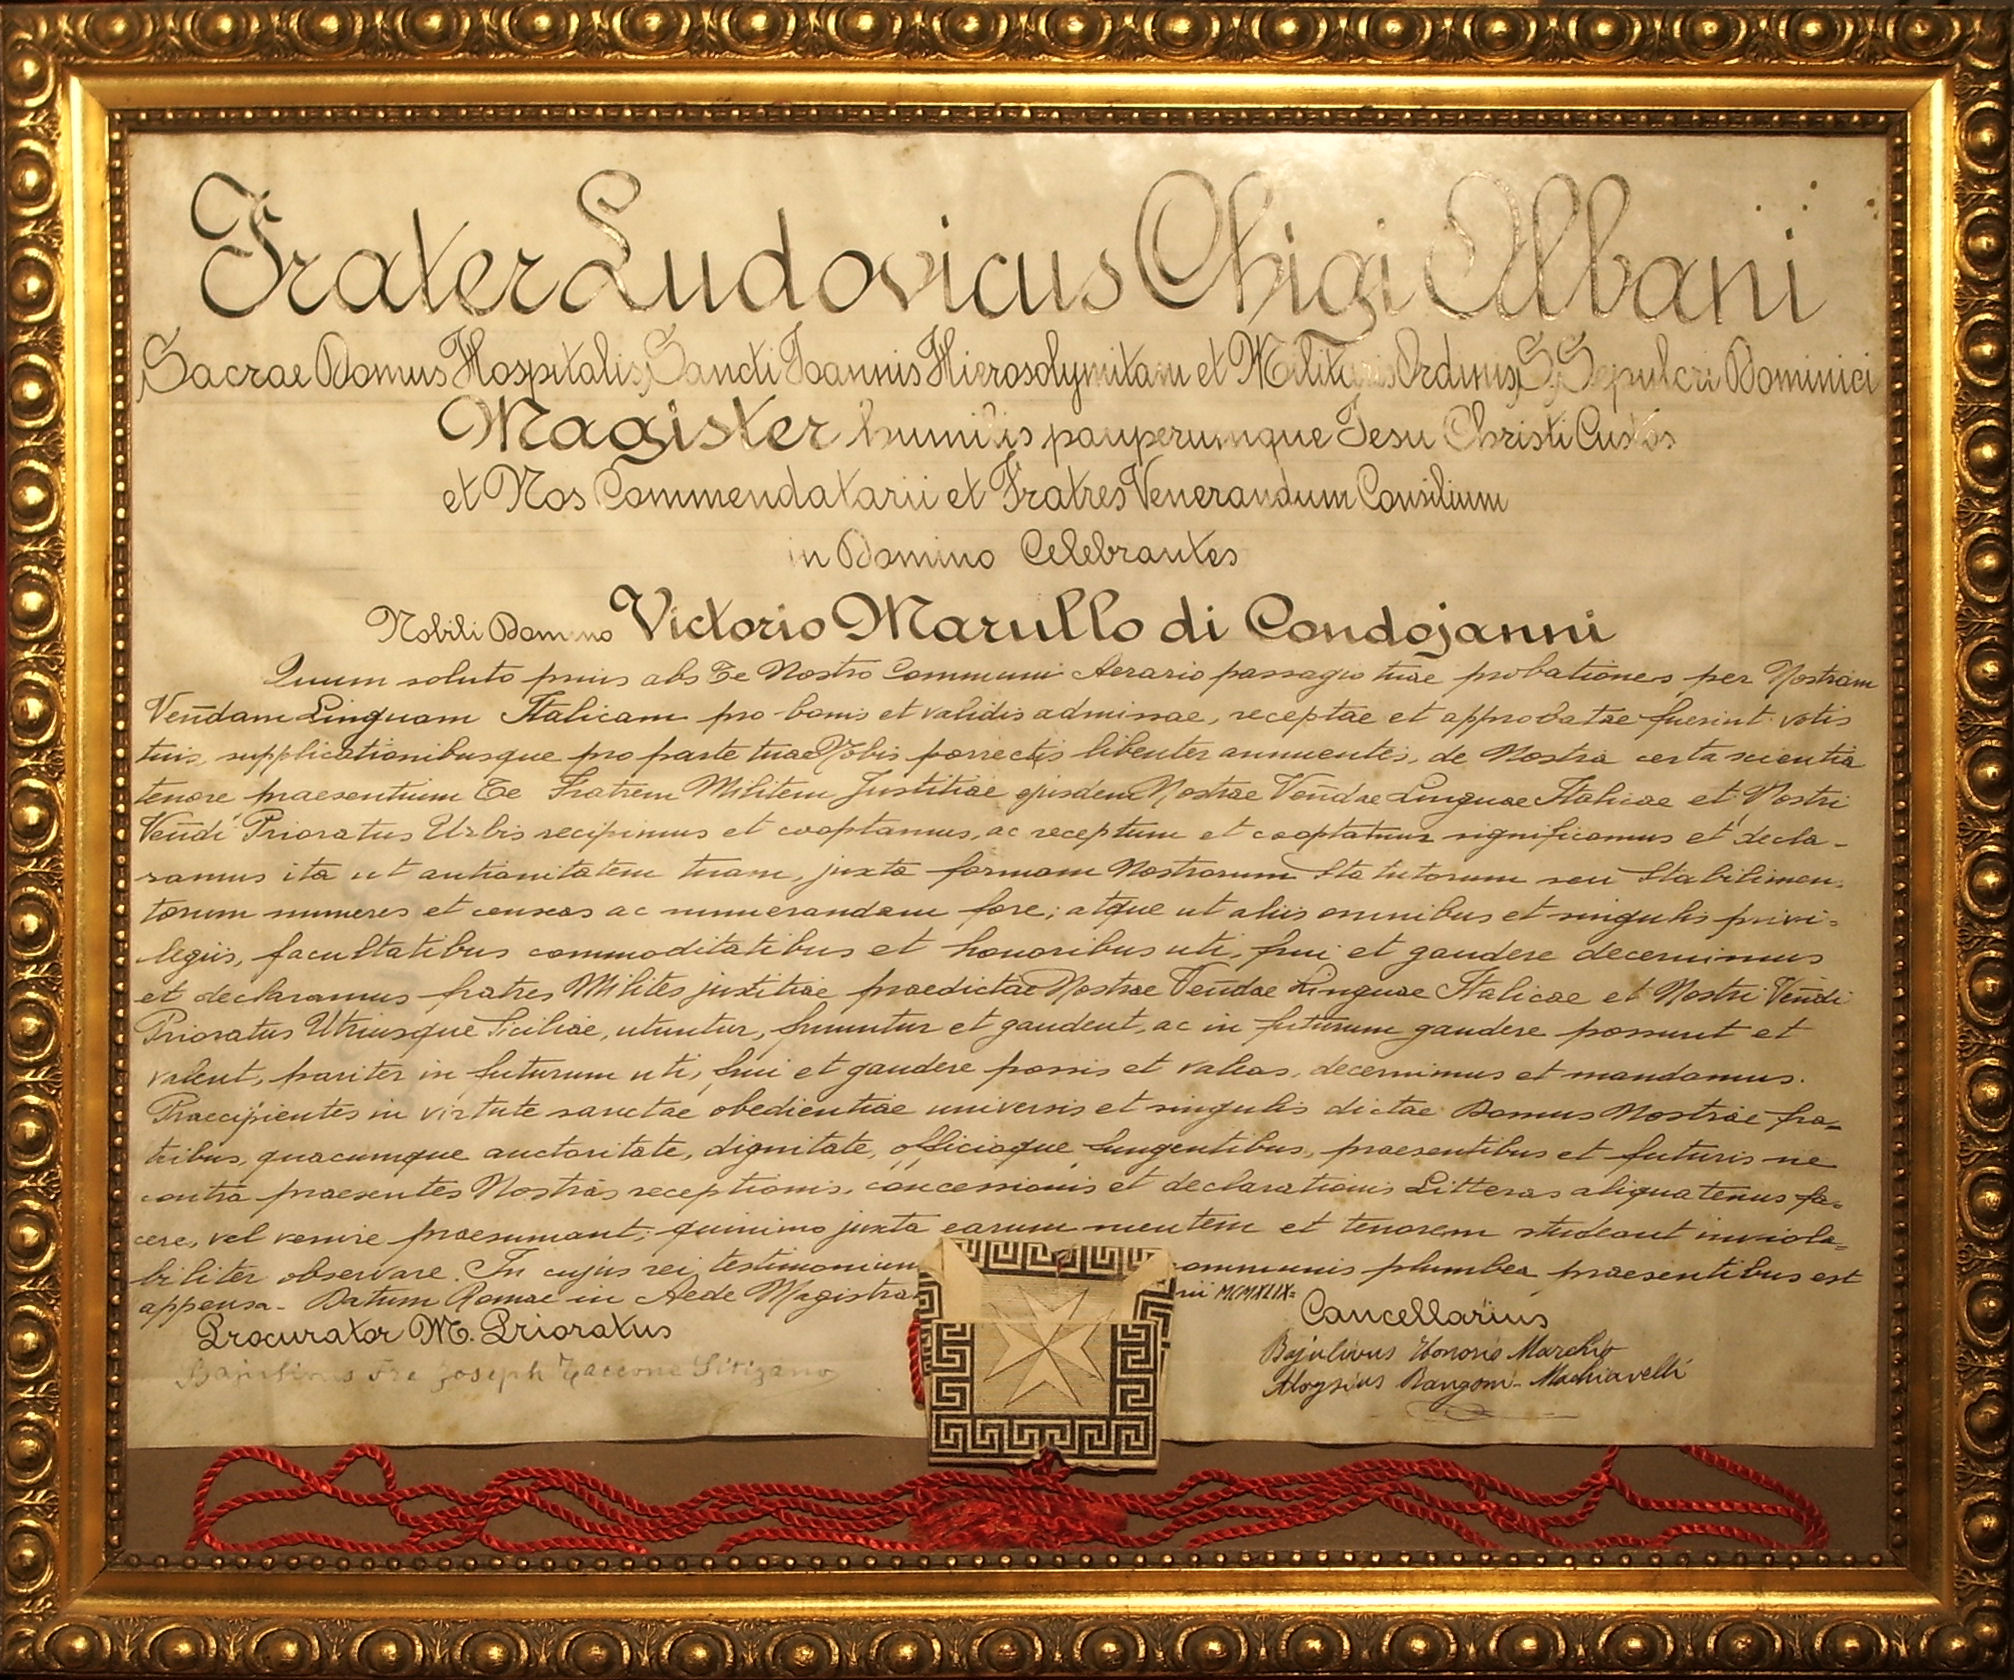 Frater Ludovicus Chigi Albani
Sacrae Domus Hospitalis Sancti Joannis Hierosolymitani et Militaris Ordinis S. Sepulcri Dominici
Magister humilis pauperumque Jesu Christi Custos
et Nos Commendatarii et Fratres Venerandum Consilium
in Domino Celebrantes
Nobili Domino Victorio Marullo di Condojanni
Quum soluto prius abs Te Nostro Communi Aerario passagio tuae probationes per Nostram
Vendam Linguam Italicam pro bonis et validis admissae, receptae et approbatae fuerint votis
tuis, supplicationibusque pro parte tuae Nobis porrectis libenter annuentes, de Nostra certa scientia
tenore praesentium Te Fratrem Militem Justitiae ejusdem Nostrae Vendae Linguae Italicae et Nostri
Vendi Prioratus Urbis recipimus et cooptamus, ac receptum et cooptatum significamus et decla-
ramus ita ut antianitatem tuam, juxta formam Nostrorum Statutorum seu Stabilimen-
torum numeres et censeas ac numerandam fore; atque ut aliis omnibus et singulis privi-
legiis, facultatibus commoditatibus et honoribus uti, frui et gaudere decernimus
et declaramus fratres Milites justitiae praedictae Nostrae Vendae Linguae Italicae et Nostri Vendi
Prioratus Utriusque Siciliae, utuntur, fruuntur et gaudent, ac in futurum gaudere possunt et
valent, pariter in futurum uti, frui et gaudere possis et valeas, decernimus et mandamus.
Praecipientes in virtute sanctae obedientiae universis et singulis dictae Domus Nostrae fra-
tribus, quacumque auctoritate, dignitate, officioque fungentibus, praesentibus et futuris ne
contra praesentes Nostras receptionis, concessionis et declarationis Litteras aliquatenus fa-
cere, vel venire praesumant; quinimo juxta earum mentem et tenorem studeant inviola-
biliter observare. In cujus rei testimonium ommunis plumbea praesentibus est
appensa. Datum Romae in Aede Magistra nii MCMXLIX
Procurator M. Prioratus
Cancellarius
Bajulivus Fre Joseph Taccone Sitizano
Bajulivus Honorio Marchio
Aloysius Rangoni-Machiavelli